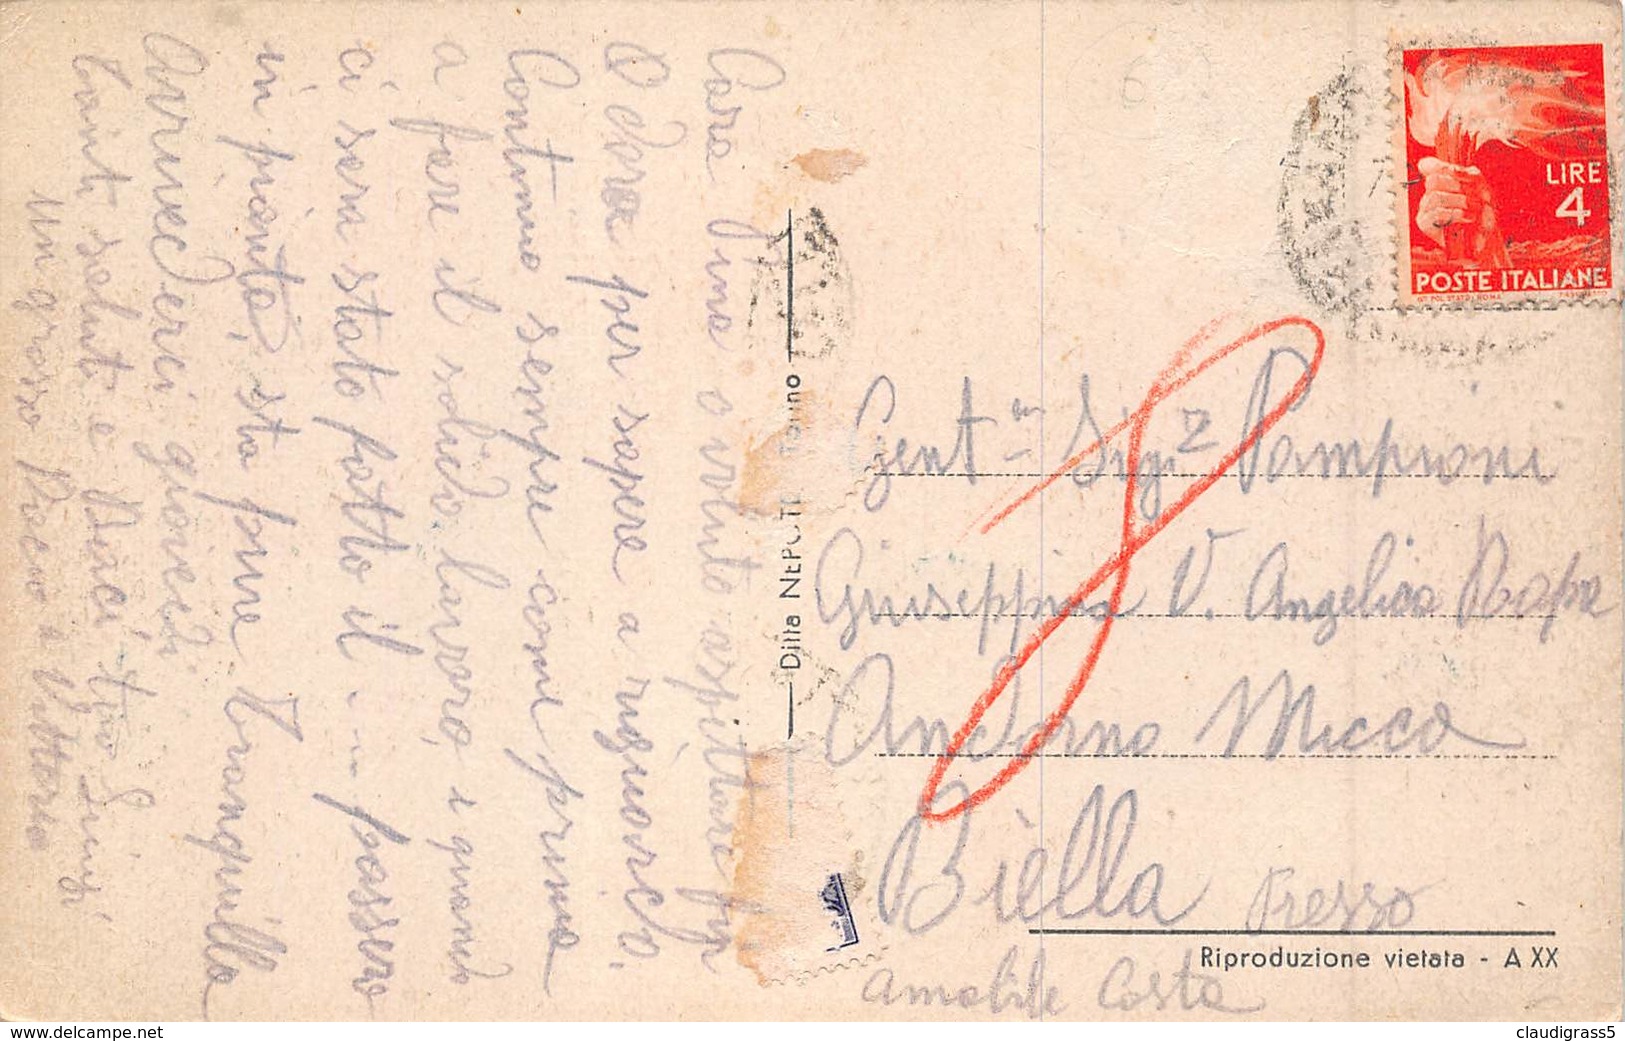 Cara Pina o voluto aspettare fin
O dora per sapere a riguardo,
Continuo sempre come prima
a fare il solido lavoro, e quando
ci sera stato fatto il ... possero
in pianta, sta pure tranquilla
Arrivederci giovedi
Tanti saluti e Baci tuo Luigi
Un grosso Bacio a Vittorio
Ditta NEPOTI Torino
LIRE
4
POSTE ITALIANE
8
Gent.ma Sig.na Pampioni
Giuseppina V. Angelica Rapa
Andorno Micca
Biella Presso
Amabile Costa
Riproduzione vietata - A XX
delcampe.net
claudigrass5